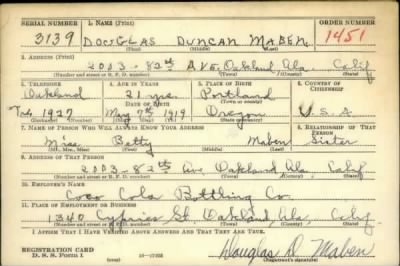 SERIAL NUMBER 1. NAME (Print) ORDER NUMBER
3139 DOUGLAS DUNCAN MABEN 1451
(First) (Middle) (Last)
2. ADDRESS (Print)
2003 - 82nd Ave. Oakland Ala. Calif
(Number and street or R. F. D. number) (Town) (County) (State)
3. TELEPHONE 4. AGE IN YEARS 5. PLACE OF BIRTH 6. COUNTRY OF CITIZENSHIP
Oakland 21 yrs. Portland
DATE OF BIRTH (Town or county)
Tr. 1927 May 7th 1919 Oregon U.S.A
(Exchange) (Number) (Mo.) (Day) (Yr.) (State or country)
7. NAME OF PERSON WHO WILL ALWAYS KNOW YOUR ADDRESS 8. RELATIONSHIP OF THAT PERSON
Miss. Betty Maben Sister
(Mr., Mrs., Miss) (First) (Middle) (Last)
9. ADDRESS OF THAT PERSON
2003 - 82nd Ave Oakland Ala. Calif
(Number and street or R. F. D. number) (Town) (County) (State)
10. EMPLOYER'S NAME
Coca Cola Bottling Co.
11. PLACE OF EMPLOYMENT OR BUSINESS
1340 Cypress St. Oakland, Ala, Calif.
(Number and street or R. F. D. number) (Town) (County) (State)
I AFFIRM THAT I HAVE VERIFIED ABOVE ANSWERS AND THAT THEY ARE TRUE.
REGISTRATION CARD
D. S. S. Form 1 Douglas D. Maben
(Registrant's signature)